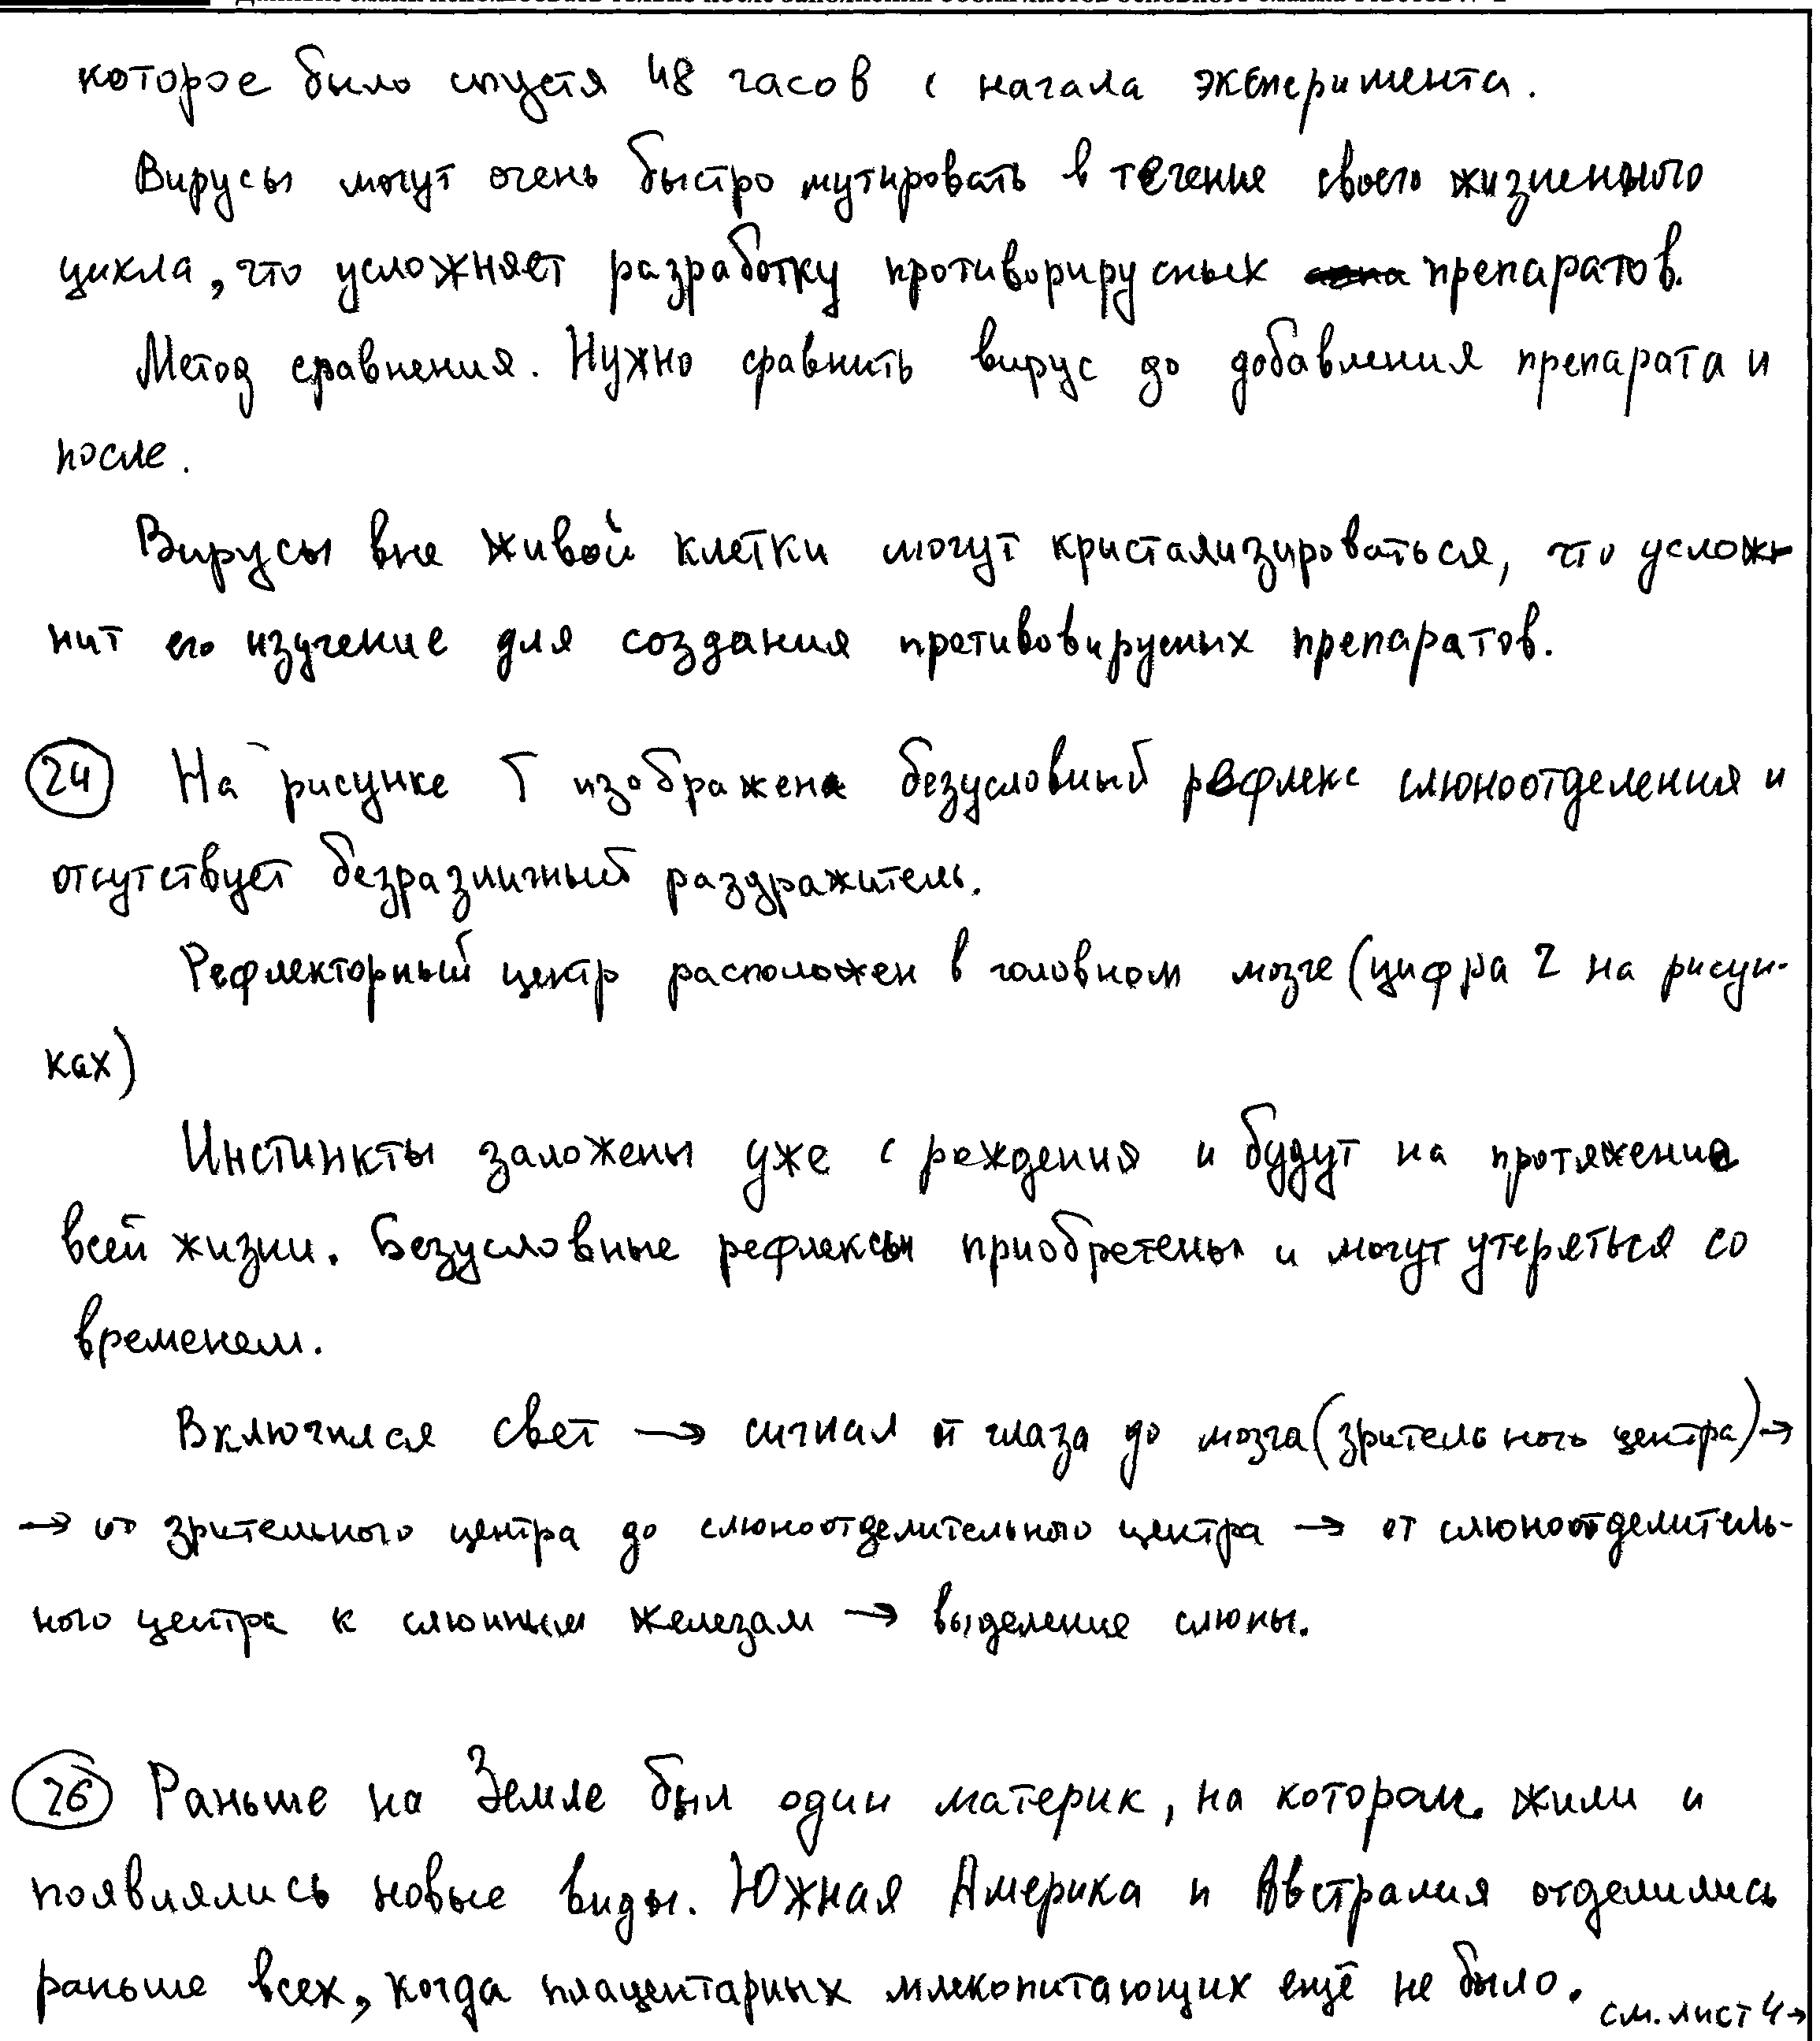 которое было спустя 48 часов с начала эксперимента.
Вирусы могут очень быстро мутировать в течение своего жизненного
цикла, что усложняет разработку противорирусных препаратов.
Метод сравнения. Нужно сравнить вирус до добавления препарата и
после.
Вирусы вне живой клетки могут кристализироваться, что услож-
нит его изучение для создания противовирусных препаратов.
24 На рисунке Б изображена безусловный рефлекс слюноотделения и
отсутствует безразличный раздражитель.
Рефлекторный центр расположен в головном мозге (цифра 2 на рисун-
ках)
Инстинкты заложены уже с рождения и будут на протяжение
всей жизни. Безусловные рефлексы приобретены и могут утеряться со
временем.
Включился свет → сигнал от глаза до мозга (зрительного центра) →
→ от зрительного центра до слюноотделительного центра → от слюноотделитель-
ного центра к слюнным железам → выделение слюны.
26 Раньше на Земле был один материк, на котором жили и
появлялись новые виды. Южная Америка и Австралия отделились
раньше всех, когда плацентарных млекопитающих ещё не было.
см. лист 4→